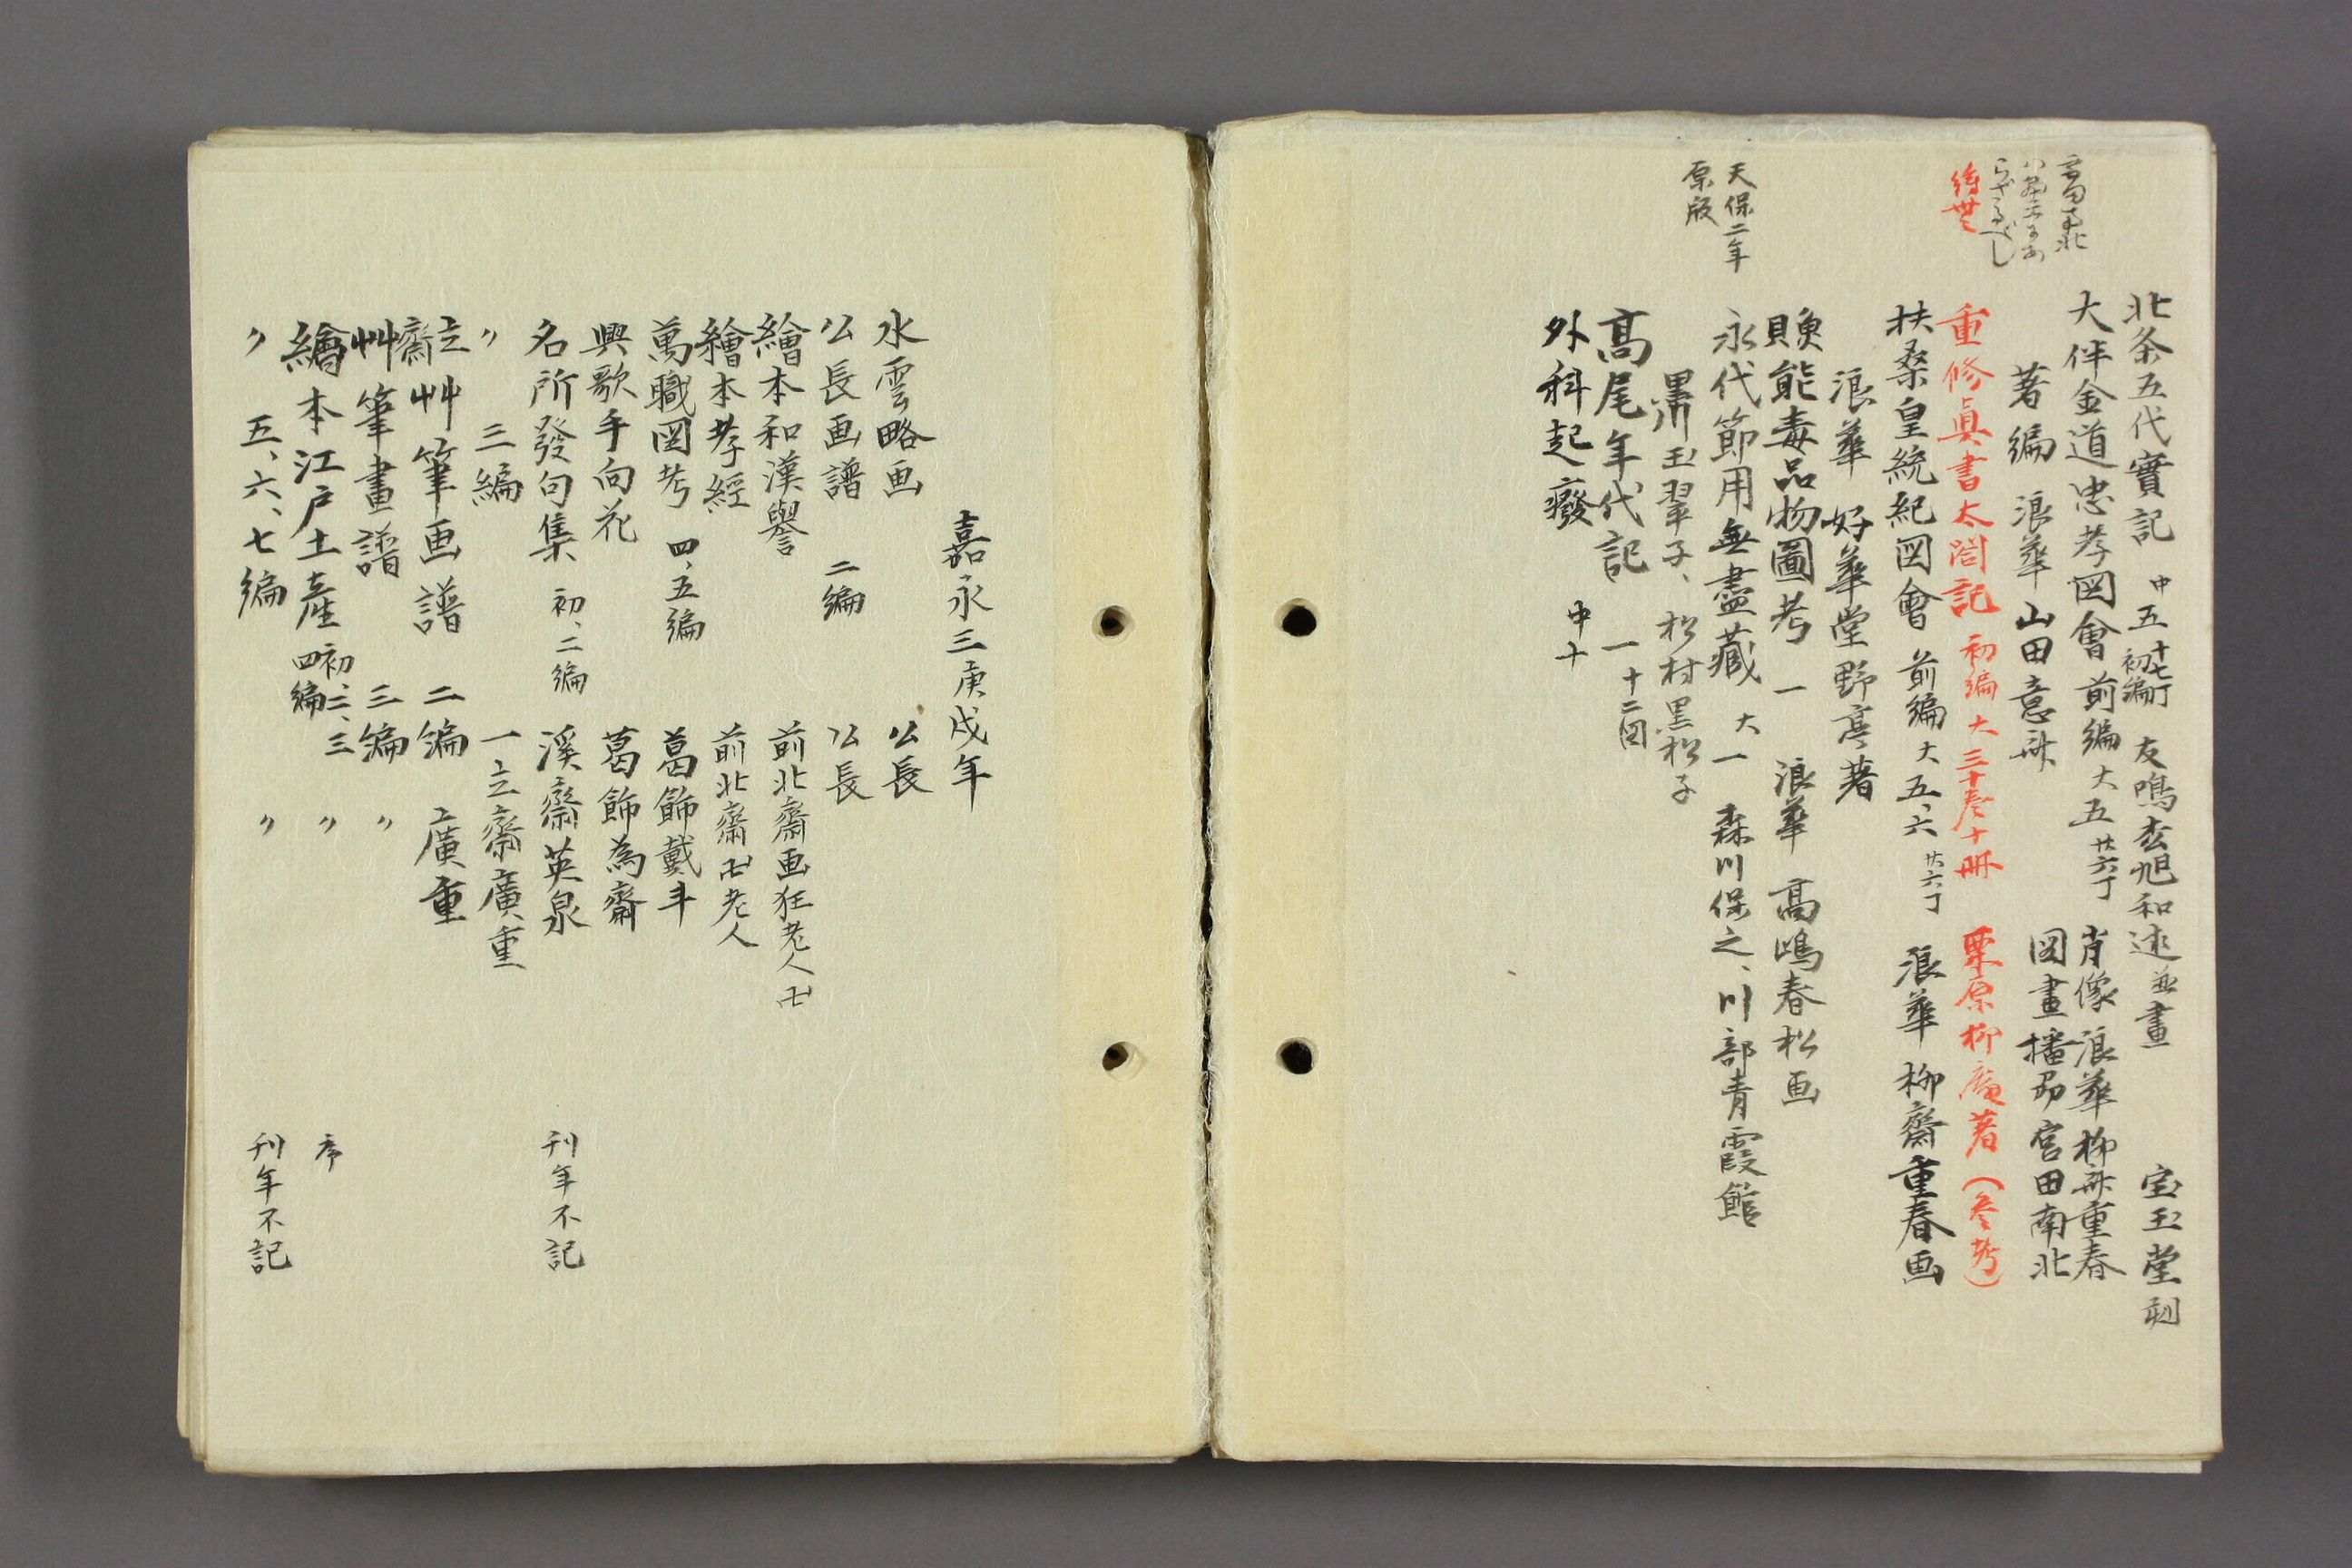 北条五代實記 中五 十七丁 初編 友鳴松旭和述並畫 宝玉堂刻
大伴金道忠孝図會 前編 大五 廿六丁 肖像 浪華柳斎重春
著編 浪華山田意斎 図畫播昜宮田南北
重修眞書太閤記 初編 大 三十巻十冊 栗原柳庵著(参考)
扶桑皇統紀図會 前編 大五、六 廿六丁 浪華 柳齋重春画
浪華 好華堂野亭著
天保二年
原版
能毒品物圖考 一 浪華 高嶋春松画
永代節用無盡藏 大一 森川保之、川部青霞館
玉翠子、松村黒松子
高尾年代記 一 十二図
外科起癈 中十
嘉永三庚戌年
水雲略画 公長
公長画譜 二編 公長
繪本和漢譽 前北齋画狂老人卍
繪本孝經 前北齋卍老人
萬職図考 四、五編 葛飾戴斗
興歌手向花 葛飾為齋
名所發句集 初、二編 溪齋英泉 刊年不記
〃 三編 一立齋廣重
立齋艸筆画譜 二編 廣重
艸筆畫譜 三編 〃
繪本江戸土産 初、二、三、四編 〃 序
〃 五、六、七編 〃 刊年不記